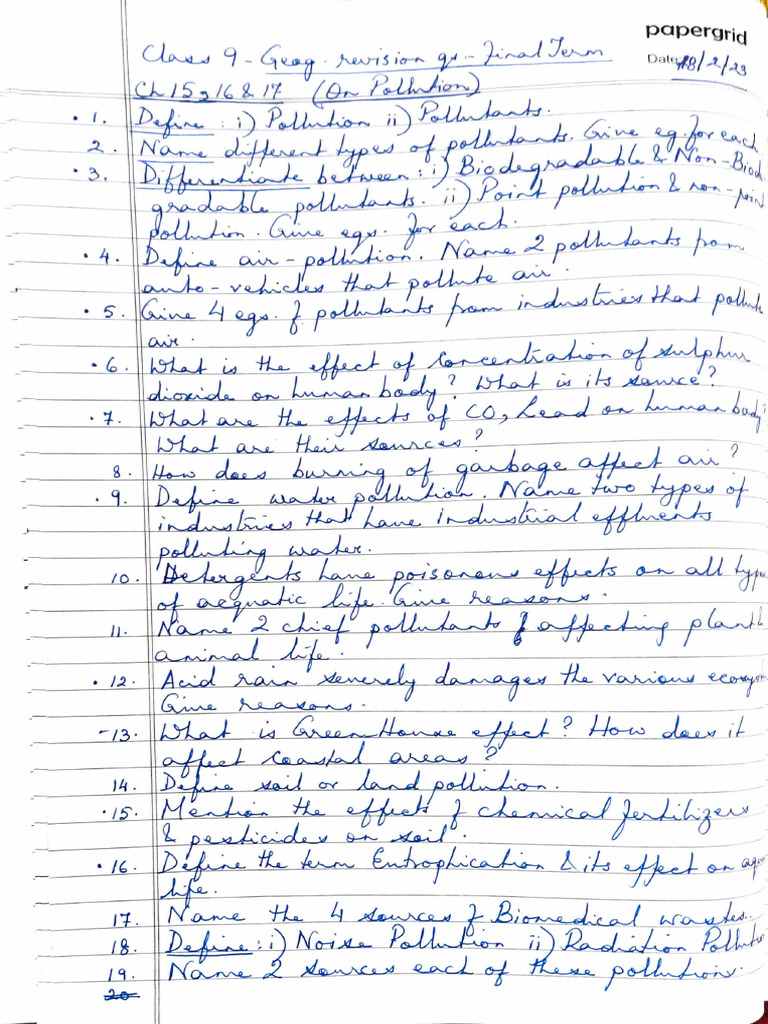 papergrid
Date: 18/2/23
Class 9 - Geog. revision qs. - Final Term
Ch 15, 16 & 17 (On Pollution)
• 1. Define: i) Pollution ii) Pollutants.
2. Name different types of pollutants. Give eg. for each
• 3. Differentiate between: i) Biodegradable & Non-Biod
gradable pollutants. ii) Point pollution & non-point
pollution. Give egs. for each.
• 4. Define air-pollution. Name 2 pollutants from
auto-vehicles that pollute air.
• 5. Give 4 egs. of pollutants from industries that pollute
air.
• 6. What is the effect of concentration of sulphur
dioxide on human body? What is its source?
• 7. What are the effects of CO, Lead on human body?
What are their sources?
8. How does burning of garbage affect air?
• 9. Define water pollution. Name two types of
industries that have industrial effluents
polluting water.
10. Detergents have poisonous effects on all type
of aequatic life. Give reasons.
11. Name 2 chief pollutants affecting plant &
animal life.
• 12. Acid rain severely damages the various ecosys
Give reasons.
- 13. What is Green House effect? How does it
affect coastal areas?
14. Define soil or land pollution.
• 15. Mention the effects of chemical fertilizers
& pesticides on soil.
• 16. Define the term Entrophication & its effect on aqu
life.
17. Name the 4 sources of Biomedical wastes.
18. Define: i) Noise Pollution ii) Radiation Pollution
19. Name 2 sources each of these pollutions.
20